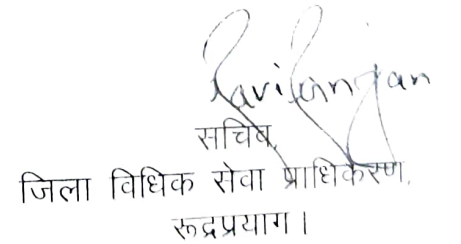 Ravi Ranjan
सचिव,
जिला विधिक सेवा प्राधिकरण,
रूद्रप्रयाग।